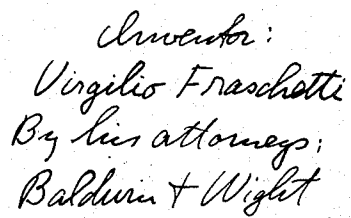 Inventor:
Virgilio Fraschetti
By his attorneys;
Baldwin + Wight